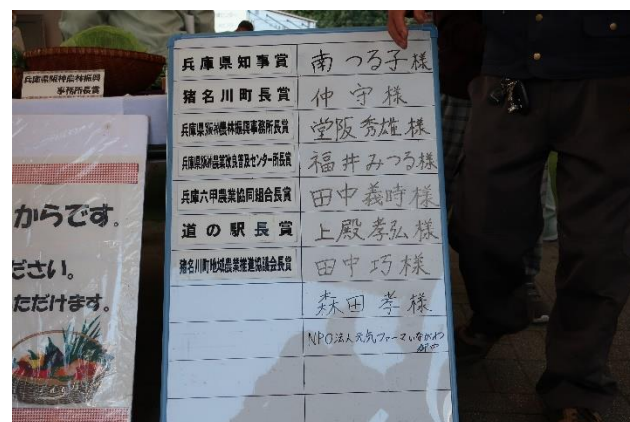 兵庫県阪神農林振興
事務所長賞
からです。
ださい。
ただけます。
兵庫県知事賞 南 つる子様
猪名川町長賞 仲 守 様
兵庫県阪神農林振興事務所長賞 堂阪 秀雄 様
兵庫県阪神農業改良普及センター所長賞 福井みつる様
兵庫六甲農業協同組合長賞 田中義時様
道の駅長賞 上殿孝弘 様
猪名川町地域農業推進協議会長賞 田中 巧 様
森田 孝 様
NPO法人元気ファームいながわ